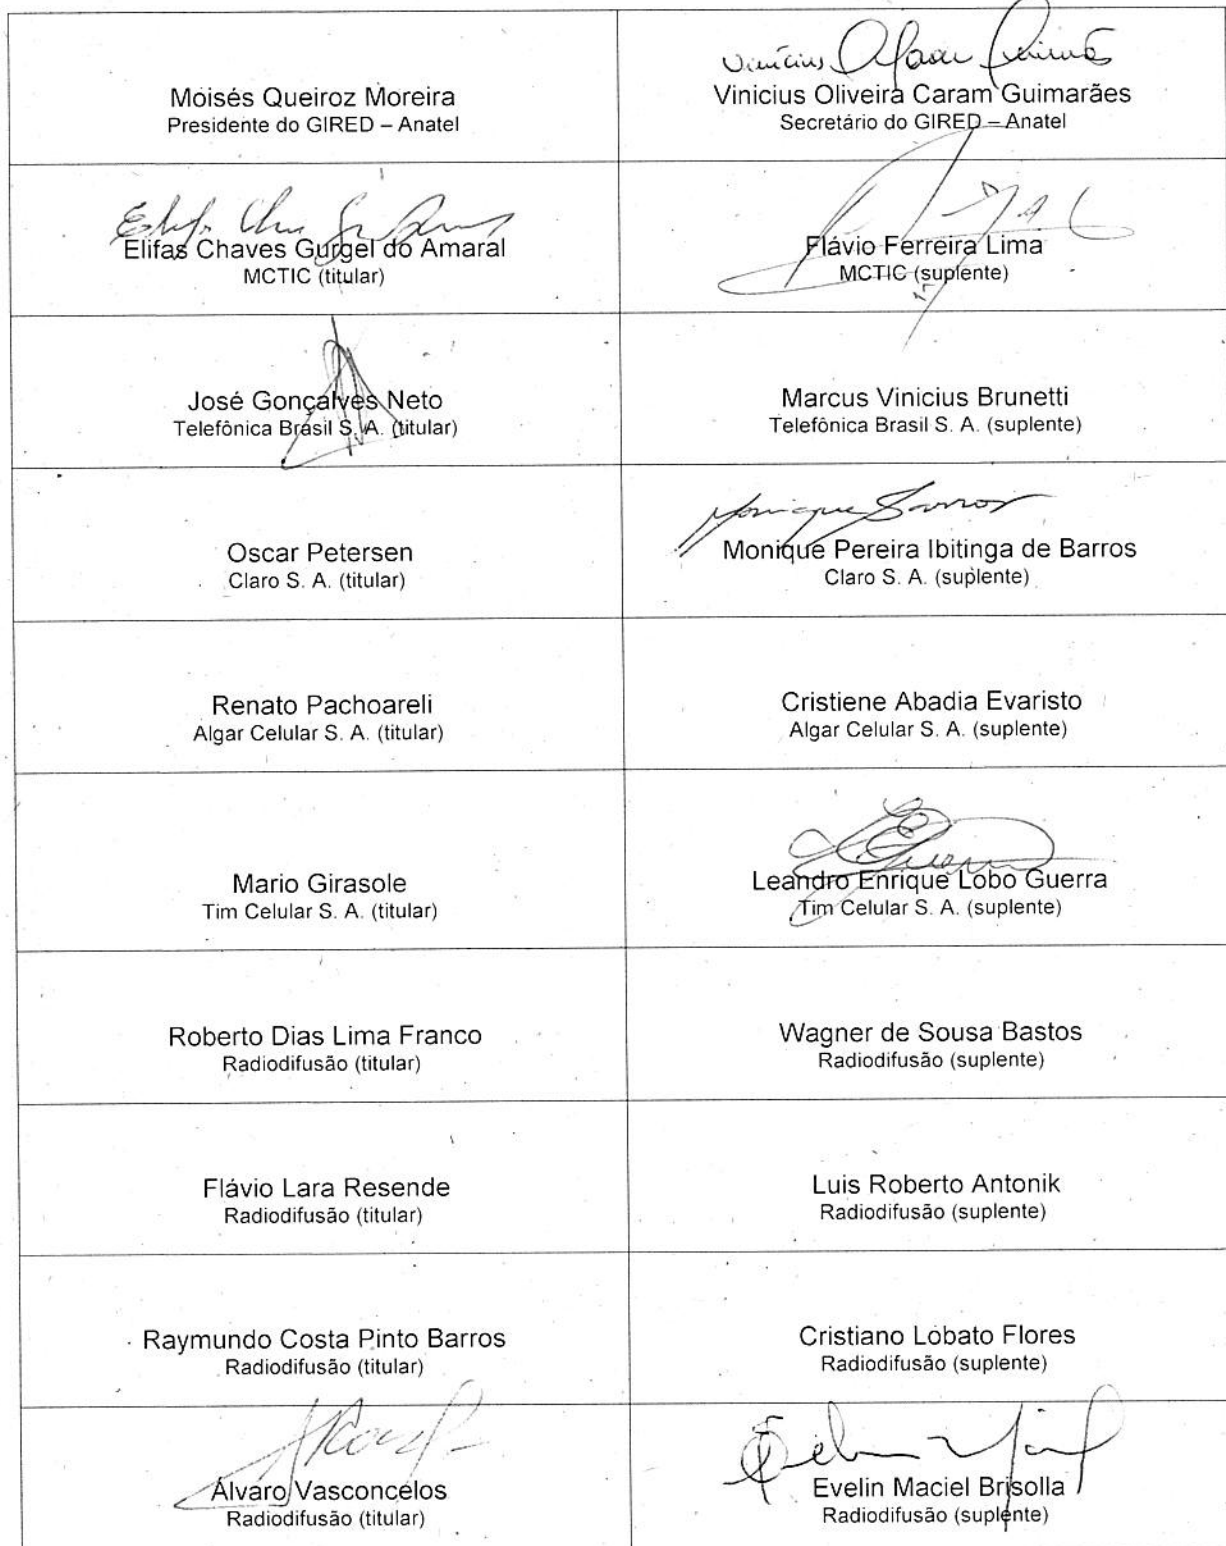 Moisés Queiroz Moreira
Presidente do GIRED – Anatel
Vinícius
Vinicius Oliveira Caram Guimarães
Secretário do GIRED – Anatel
Elifas Chaves Gurgel do Amaral
MCTIC (titular)
Flávio Ferreira Lima
MCTIC (suplente)
José Gonçalves Neto
Telefônica Brasil S. A. (titular)
Marcus Vinicius Brunetti
Telefônica Brasil S. A. (suplente)
Oscar Petersen
Claro S. A. (titular)
Monique Barros
Monique Pereira Ibitinga de Barros
Claro S. A. (suplente)
Renato Pachoareli
Algar Celular S. A. (titular)
Cristiene Abadia Evaristo
Algar Celular S. A. (suplente)
Mario Girasole
Tim Celular S. A. (titular)
Leandro Enrique Lobo Guerra
Tim Celular S. A. (suplente)
Roberto Dias Lima Franco
Radiodifusão (titular)
Wagner de Sousa Bastos
Radiodifusão (suplente)
Flávio Lara Resende
Radiodifusão (titular)
Luis Roberto Antonik
Radiodifusão (suplente)
Raymundo Costa Pinto Barros
Radiodifusão (titular)
Cristiano Lobato Flores
Radiodifusão (suplente)
Álvaro Vasconcelos
Radiodifusão (titular)
Evelin Maciel Brisolla
Radiodifusão (suplente)